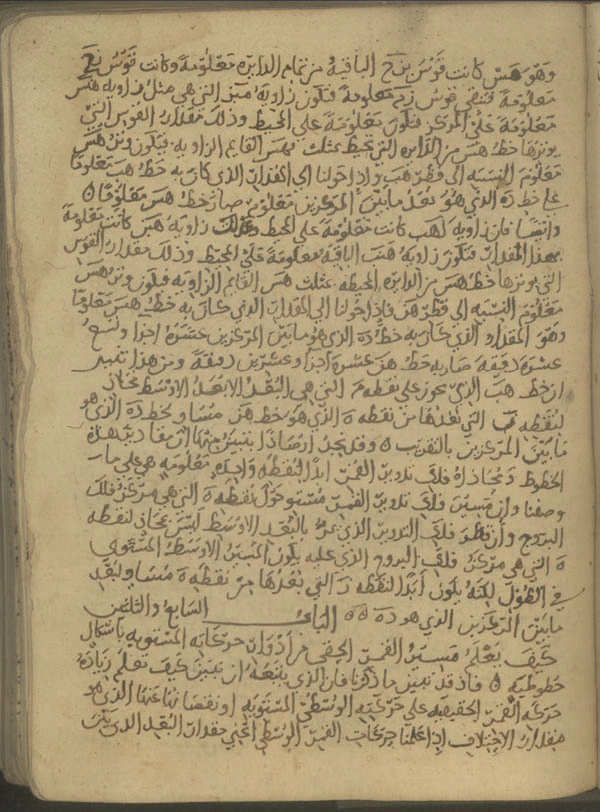 وهو هس كانت قوس بن ح الباقية من تمام الدايرة معلومة وكانت قوس نح
معلومة فتبقى قوس معلومة فتكون زاوية التي هي مثل زاوية هس
معلومة على المركز فتكون معلومة على المحيط وذلك مقدار القوس التي
يوترها خط هس من الدايرة التي تحيط بمثلث بهس القايم الزاوية فيكون وتر هس
معلوم النسبة الى قطر هب واذا حولنا الى المقدار الذي كان به خط هب معلوما
خط ده الذي هو بعد ما بين المركزين معلوم صار خط هس معلوما ه
وايضا فان زاوية اهب كانت معلومة على المحيط وكذلك زاوية هس كانت معلومة
بهذا المقدار فتكون زاوية هب الباقية معلومة على المحيط وذلك مقدار القوس
التي يوترها خط هس من الدايرة المحيطة بمثلث هس القايم الزاوية فيكون وتر هس
معلوم النسبة الى قطر هن فاذا حولنا الى المقدار الذي كان به خط هس معلوما
وهو المقدار الذي كان به خط ده الذي هو ما بين المركزين عشرة اجزا وتسع
عشرة دقيقة صار به خط هن عشرة اجزا وعشرين دقيقة ومن هذا تبين
ان خط هب الذي يجوز على نقطة م التي هي البعد الابعد الاوسط يحاذ
لنقطة التي بعدها من نقطة ه الذي هو خط هن مساو لخط ده الذي هو
ما بين المركزين بالتقريب ه وقد نجد ارصادا تبين منها هذه
الخطوط ومحاذاة فلك تدوير القمر ابدا لنقطة واحدة معلومة هي على ما
وصفنا وان مسير فلك تدوير القمر مستو حول نقطة ه التي هي مركز فلك
البروج وان قطر فلك التدوير الذي يمر بالبعد الاوسط ليس يحاذي لنقطة
ه التي هي مركز فلك البروج الذي عليه يكون المسير الاوسط المستوي
في الطول لكنه يكون ابدا لنقطة ن التي بعدها من نقطة ه مساو لبعد
ما بين المركزين الذي هو ده ه ه الباب السابع والثلثين
كيف يعلم مسير القمر الحقي من ادوار حركاته المستوية باشكال
خطوطية ه فاذ قد تبين ما ذكرنا فان الذي يتبعه ان نبين كيف تعلم زيادة
حركة القمر الحقيقية على حركته الوسطى المستوية او نقصانها عنها الذي هو
مقدار الاختلاف اذا علمنا حركات القمر الوسطى اعني مقدار البعد الذي بين